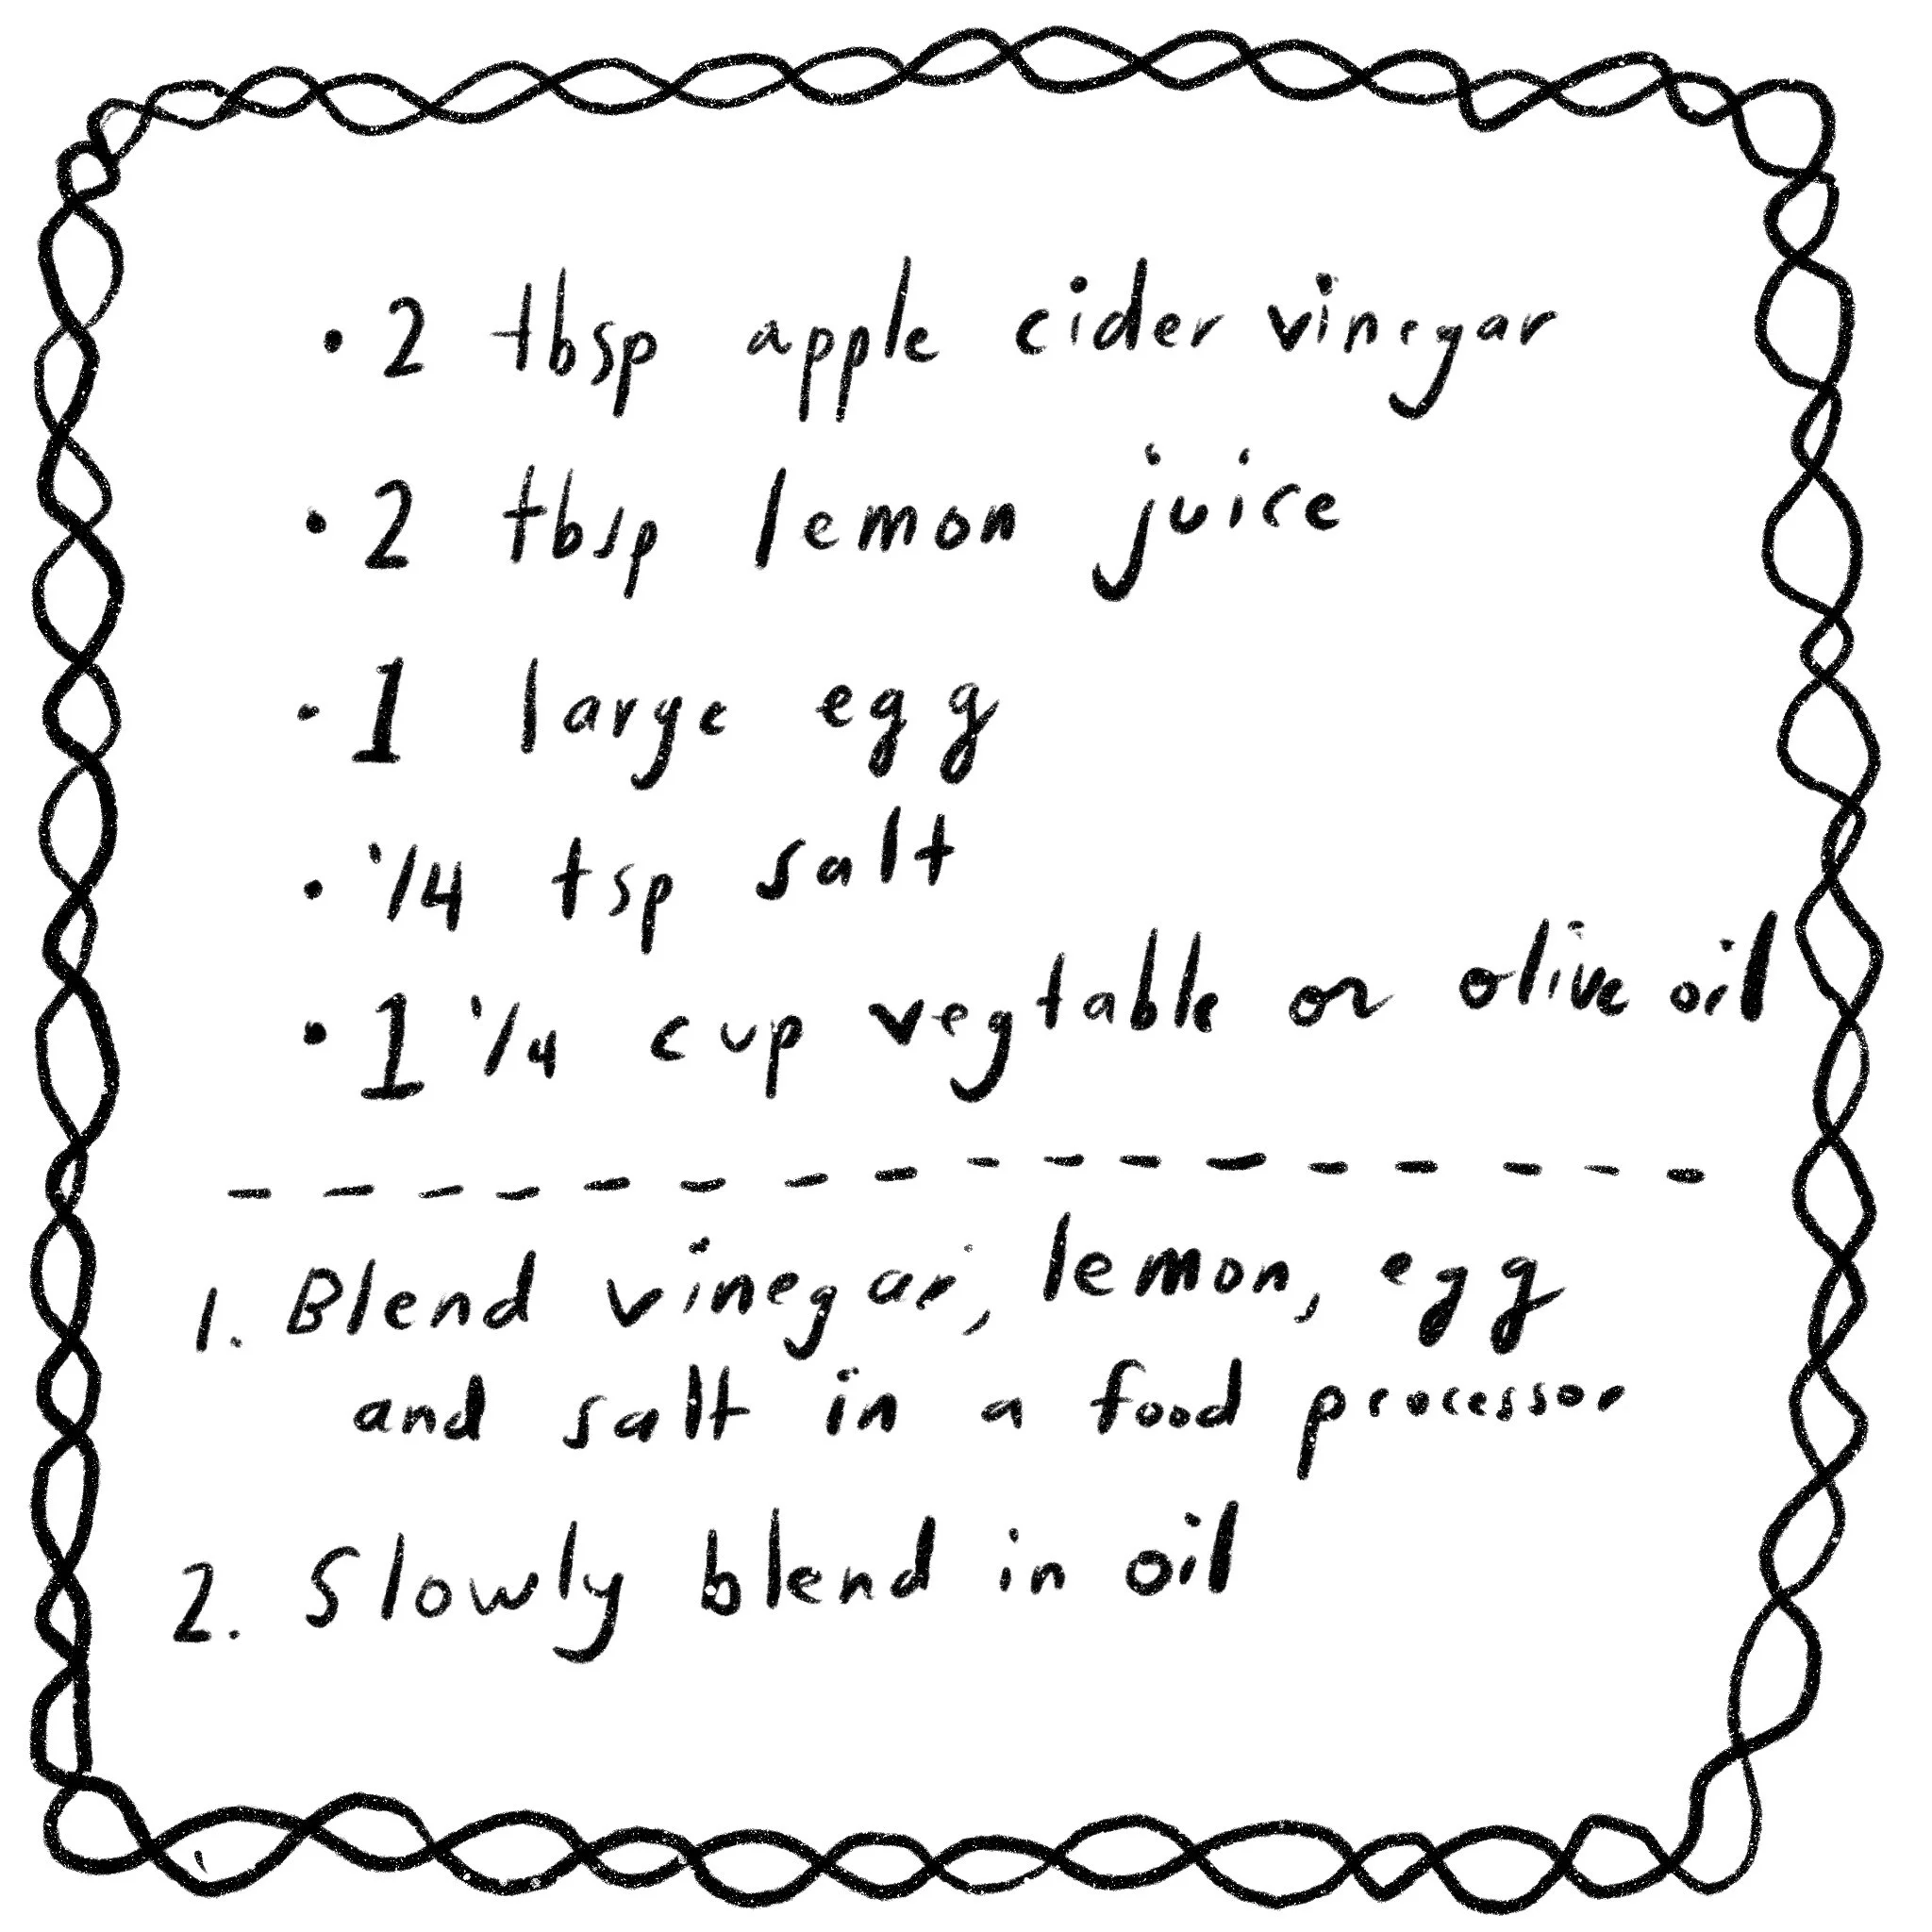 • 2 tbsp apple cider vinegar
• 2 tbsp lemon juice
• 1 large egg
• 1/4 tsp salt
• 1 1/4 cup vegtable or olive oil
1. Blend vinegar, lemon, egg
and salt in a food processor
2. Slowly blend in oil